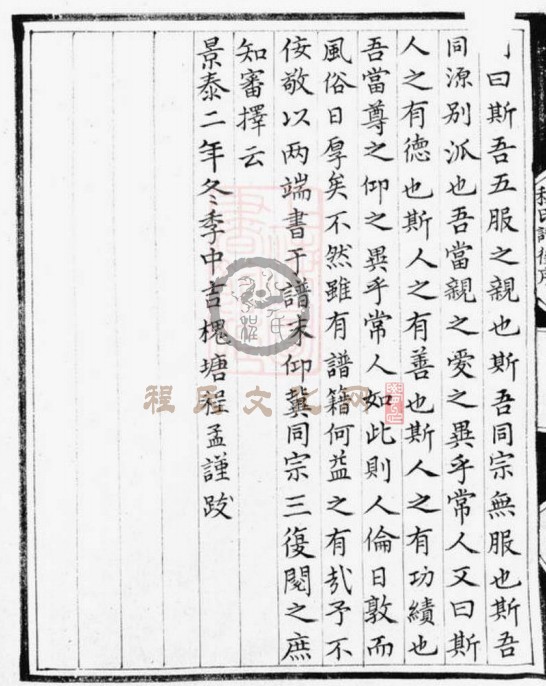 曰斯吾五服之親也斯吾同宗無服也斯吾
同源别派也吾當親之愛之異乎常人又曰斯
人之有德也斯人之有善也斯人之有功績也
吾當尊之仰之異乎常人如此則人倫日敦而
風俗日厚矣不然雖有譜籍何益之有哉予不
佞敬以两端書于譜末仰冀同宗三復閱之庶
知審擇云
景泰二年冬季中吉槐塘程孟謹跋
程氏文化网